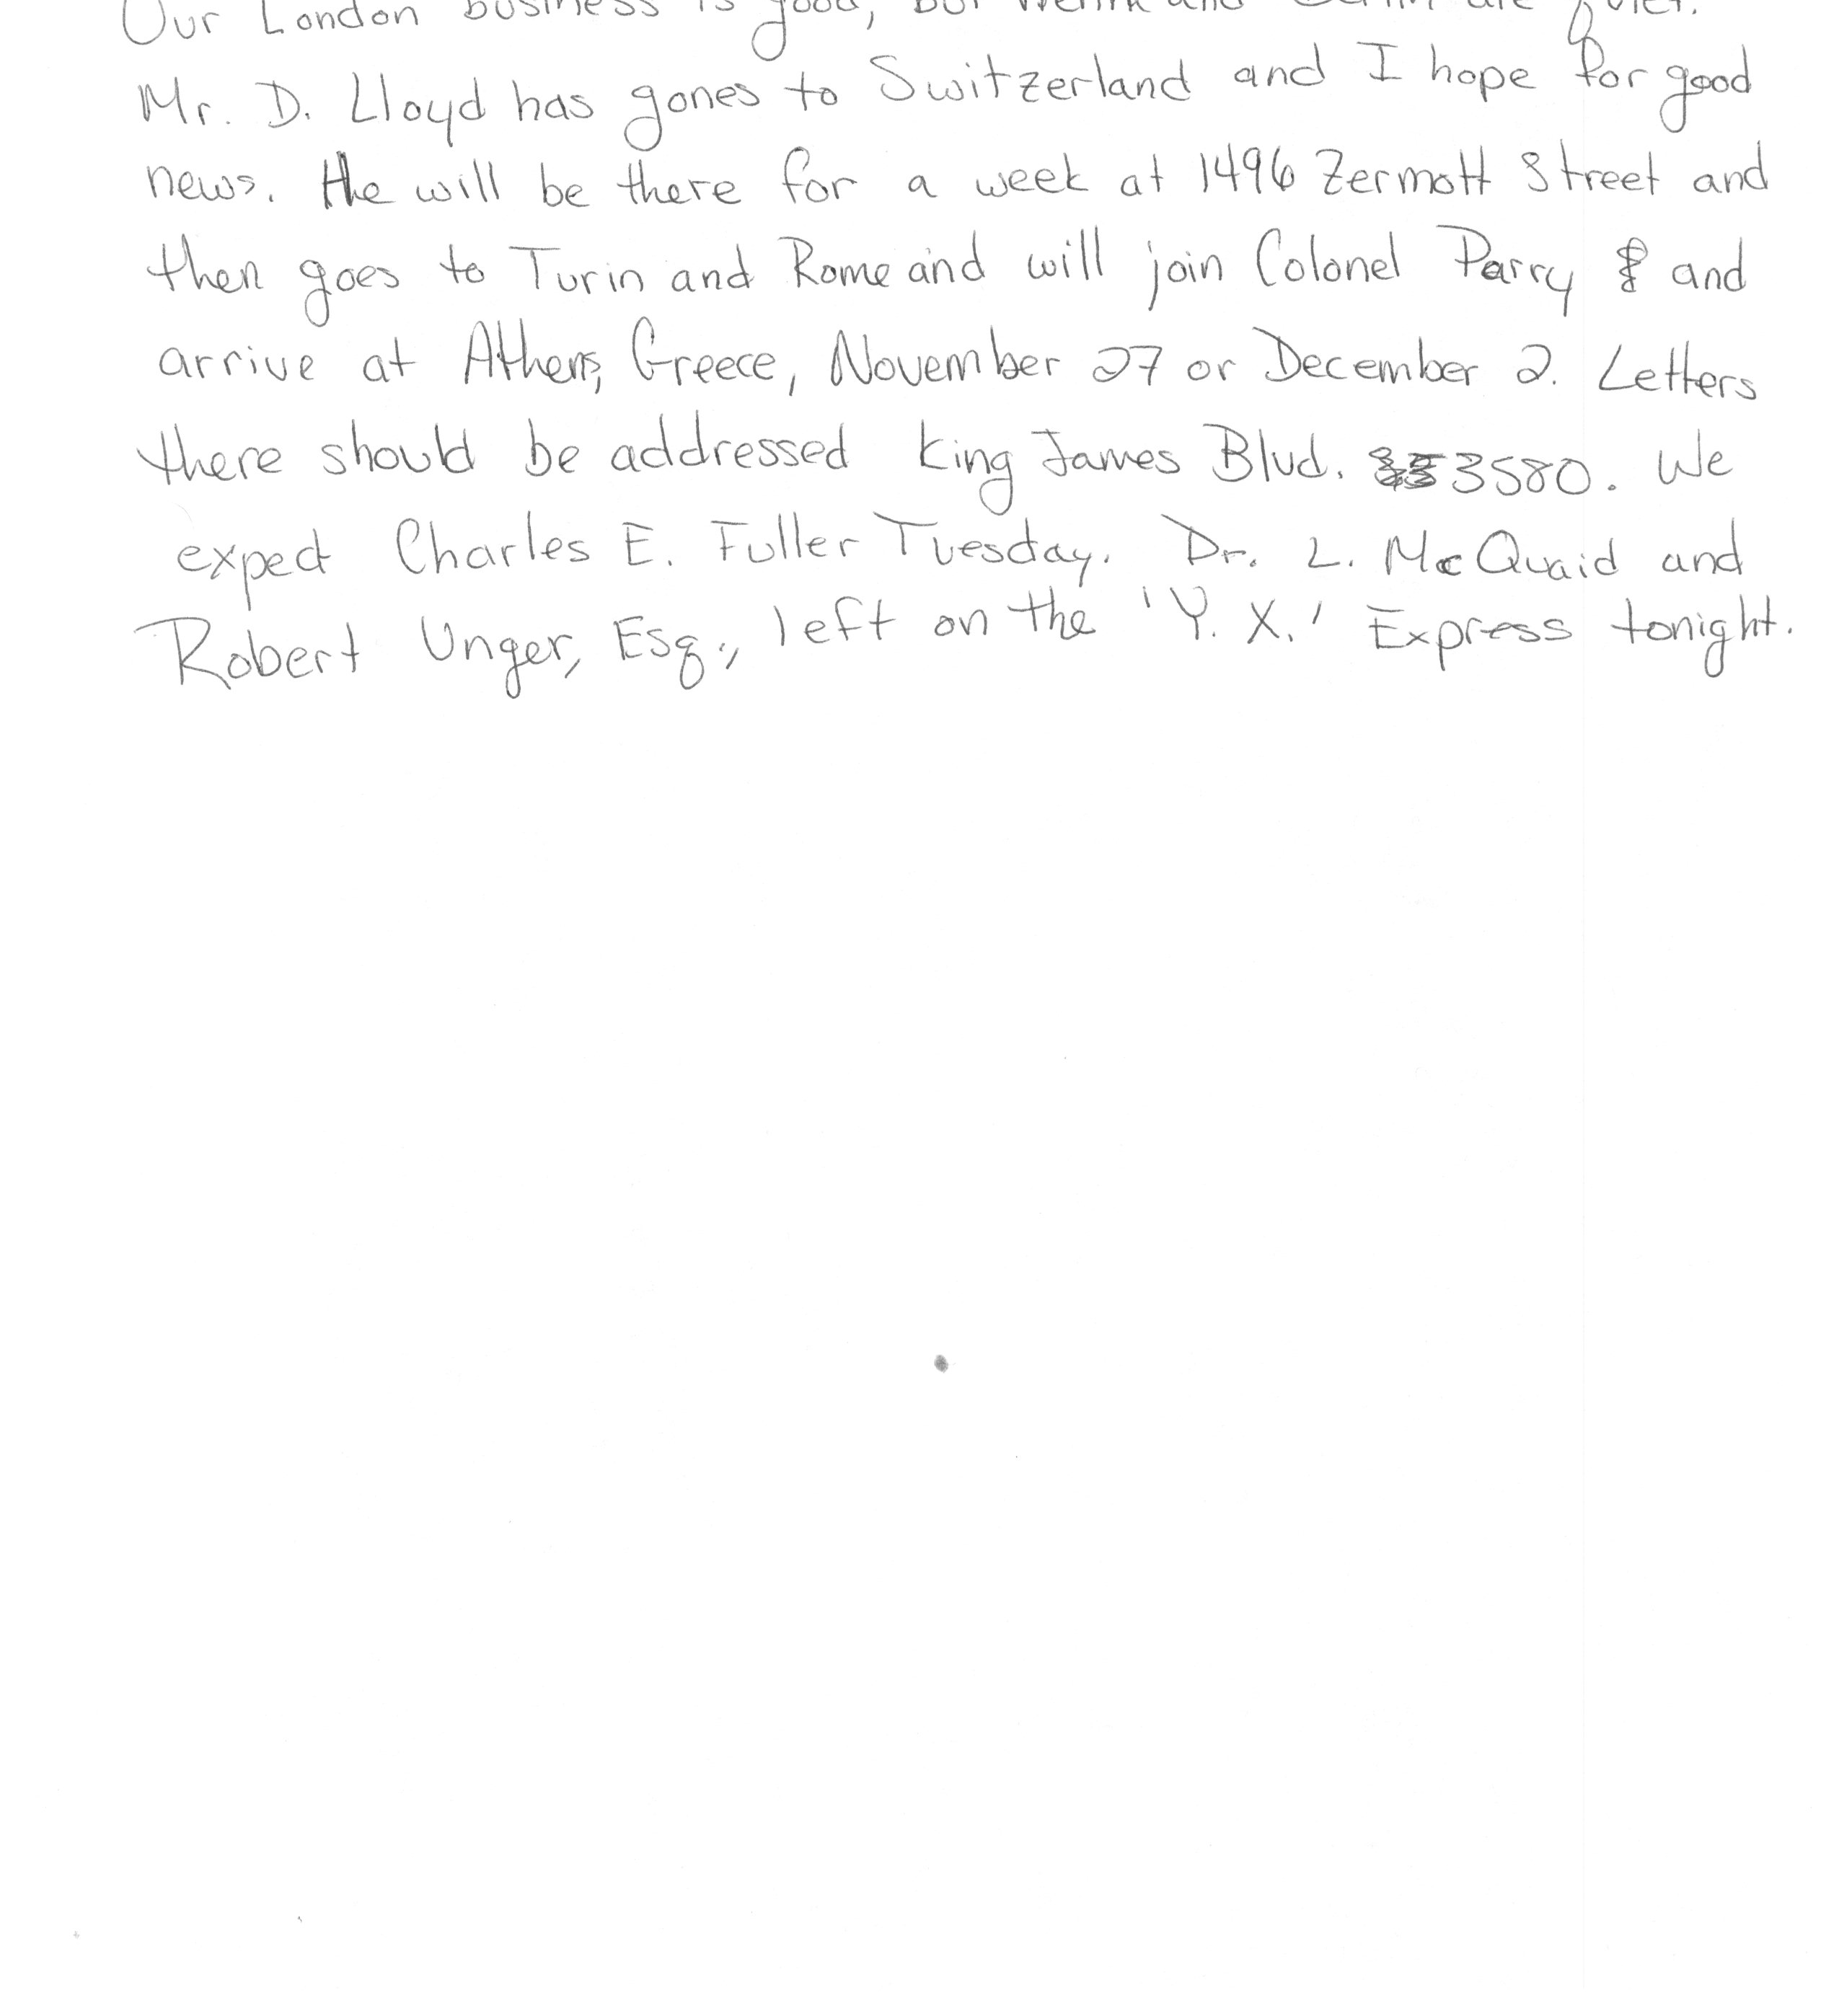 Our London business is good, but and are quiet.
Mr. D. Lloyd has gones to Switzerland and I hope for good
news. He will be there for a week at 1496 Zermott Street and
then goes to Turin and Rome and will join Colonel Parry and
arrive at Athens, Greece, November 27 or December 2. Letters
there should be addressed King James Blvd. 3580. We
expect Charles E. Fuller Tuesday. Dr. L. McQuaid and
Robert Unger, Esq., left on the 'Y. X.' Express tonight.